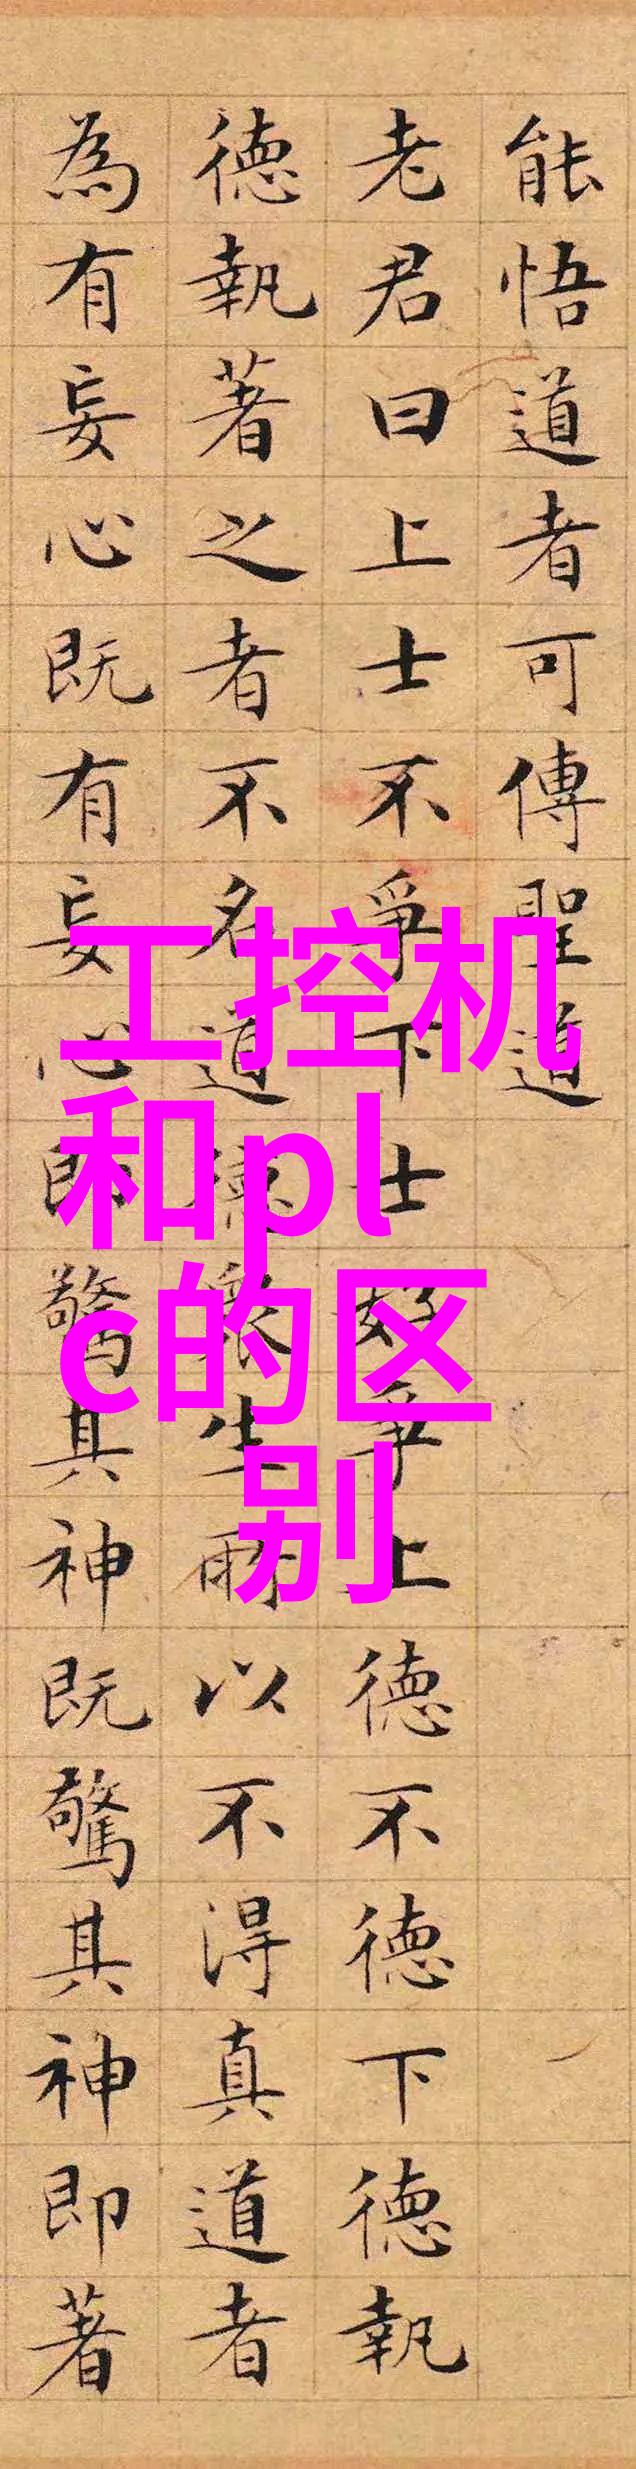 能悟道者可傳聖道
老君曰上士不爭下士好爭上德不德下德執
德執著之者不名道德衆生所以不得真道者
為有妄心既有妄心即驚其神既驚其神即著
工控机
和pl
c的区
别